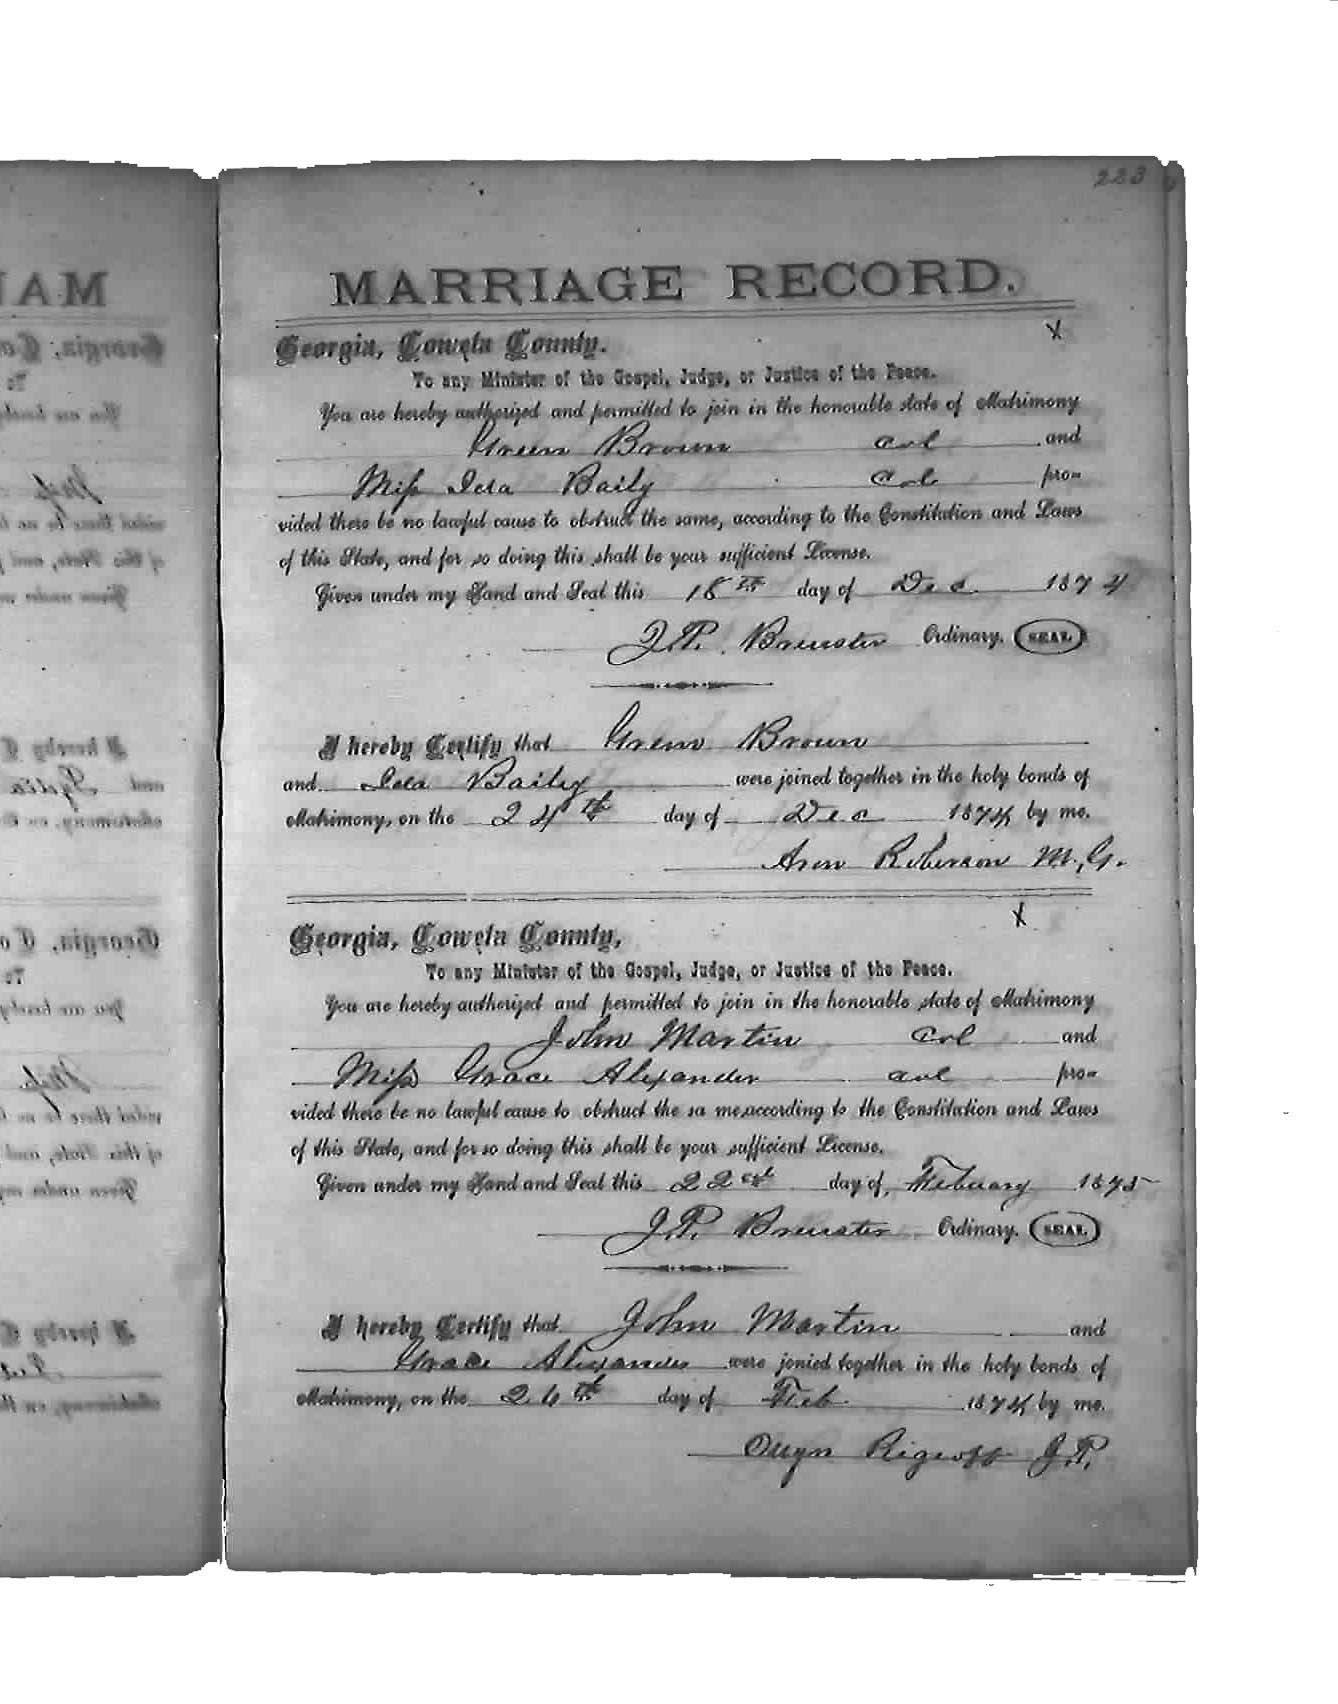 223
MARRIAGE RECORD.
Georgia, Coweta County.
To any Minister of the Gospel, Judge, or Justice of the Peace.
You are hereby authorized and permitted to join in the honorable state of Matrimony
Green Brown col and
Miss Ida Baily Col pro-
vided there be no lawful cause to obstruct the same, according to the Constitution and Laws
of this State, and for so doing this shall be your sufficient License.
Given under my Hand and Seal this 18th day of Dec 1874
J.P. Brewster Ordinary. SEAL
I hereby Certify that Green Brown
and Ida Baily were joined together in the holy bonds of
Matrimony, on the 24th day of Dec 1874 by me.
Aren Roberson M.G.
Georgia, Coweta County,
To any Minister of the Gospel, Judge, or Justice of the Peace.
You are hereby authorized and permitted to join in the honorable state of Matrimony
John Martin Col and
Miss Grace Alexander col pro-
vided there be no lawful cause to obstruct the sa me, according to the Constitution and Laws
of this State, and for so doing this shall be your sufficient License.
Given under my Hand and Seal this 22 day of Febuary 1875
J.P. Brewster Ordinary. SEAL
I hereby Certify that John Martin and
Grace Alexander were jonied together in the holy bonds of
Matrimony, on the 26th day of Feb 1874 by me.
J.P.